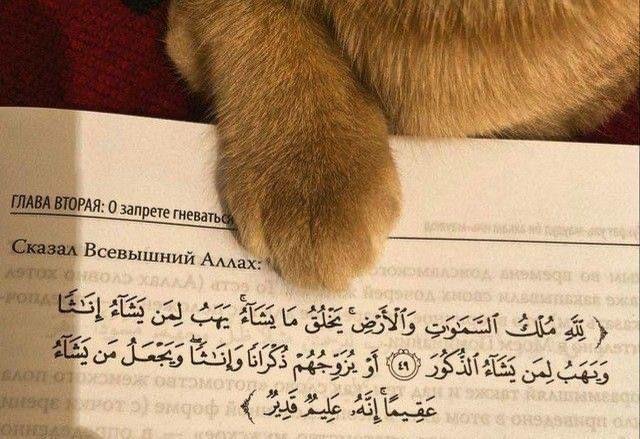 ГЛАВА ВТОРАЯ: О запрете гневаться
Сказал Всевышний Аллах:
﴿ لِّلَّهِ مُلْكُ ٱلسَّمَٰوَٰتِ وَٱلْأَرْضِ ۚ يَخْلُقُ مَا يَشَآءُ ۚ يَهَبُ لِمَن يَشَآءُ إِنَٰثًا
وَيَهَبُ لِمَن يَشَآءُ ٱلذُّكُورَ ۝٤٩ أَوْ يُزَوِّجُهُمْ ذُكْرَانًا وَإِنَٰثًا ۖ وَيَجْعَلُ مَن يَشَآءُ
عَقِيمًا ۚ إِنَّهُۥ عَلِيمٌ قَدِيرٌ ﴾